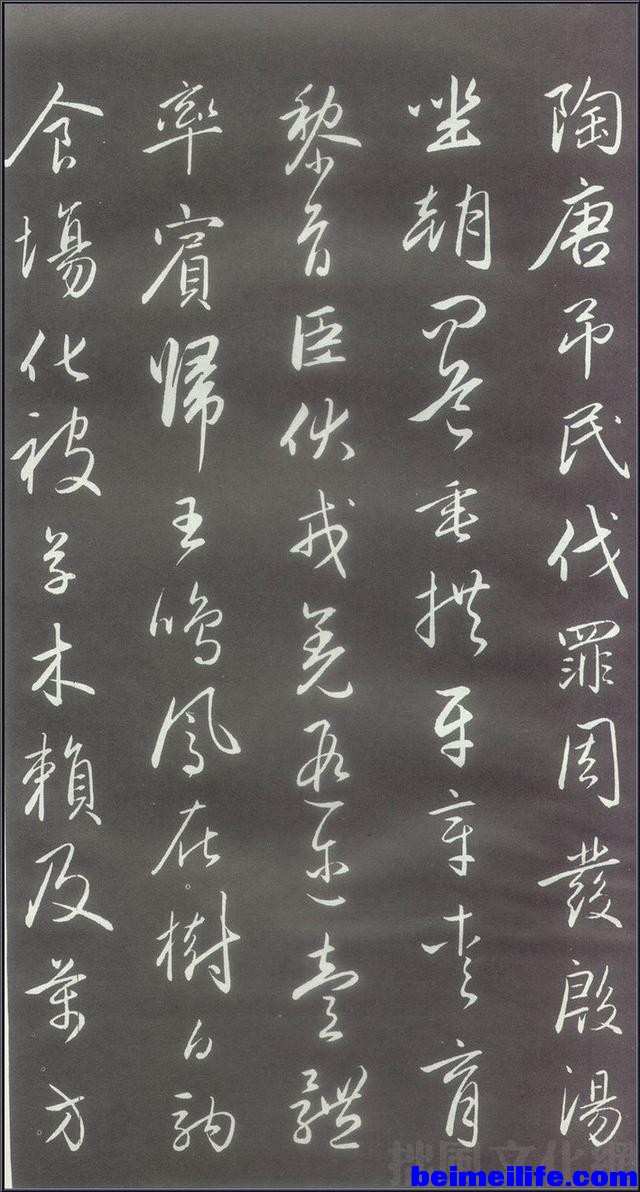 陶唐吊民伐罪周發殷湯
坐朝問道垂拱平章愛育
黎首臣伏戎羌遐迩壹體
率賓歸王鳴鳳在樹白駒
食場化被草木賴及萬方
拙風文化網
beimeilife.com